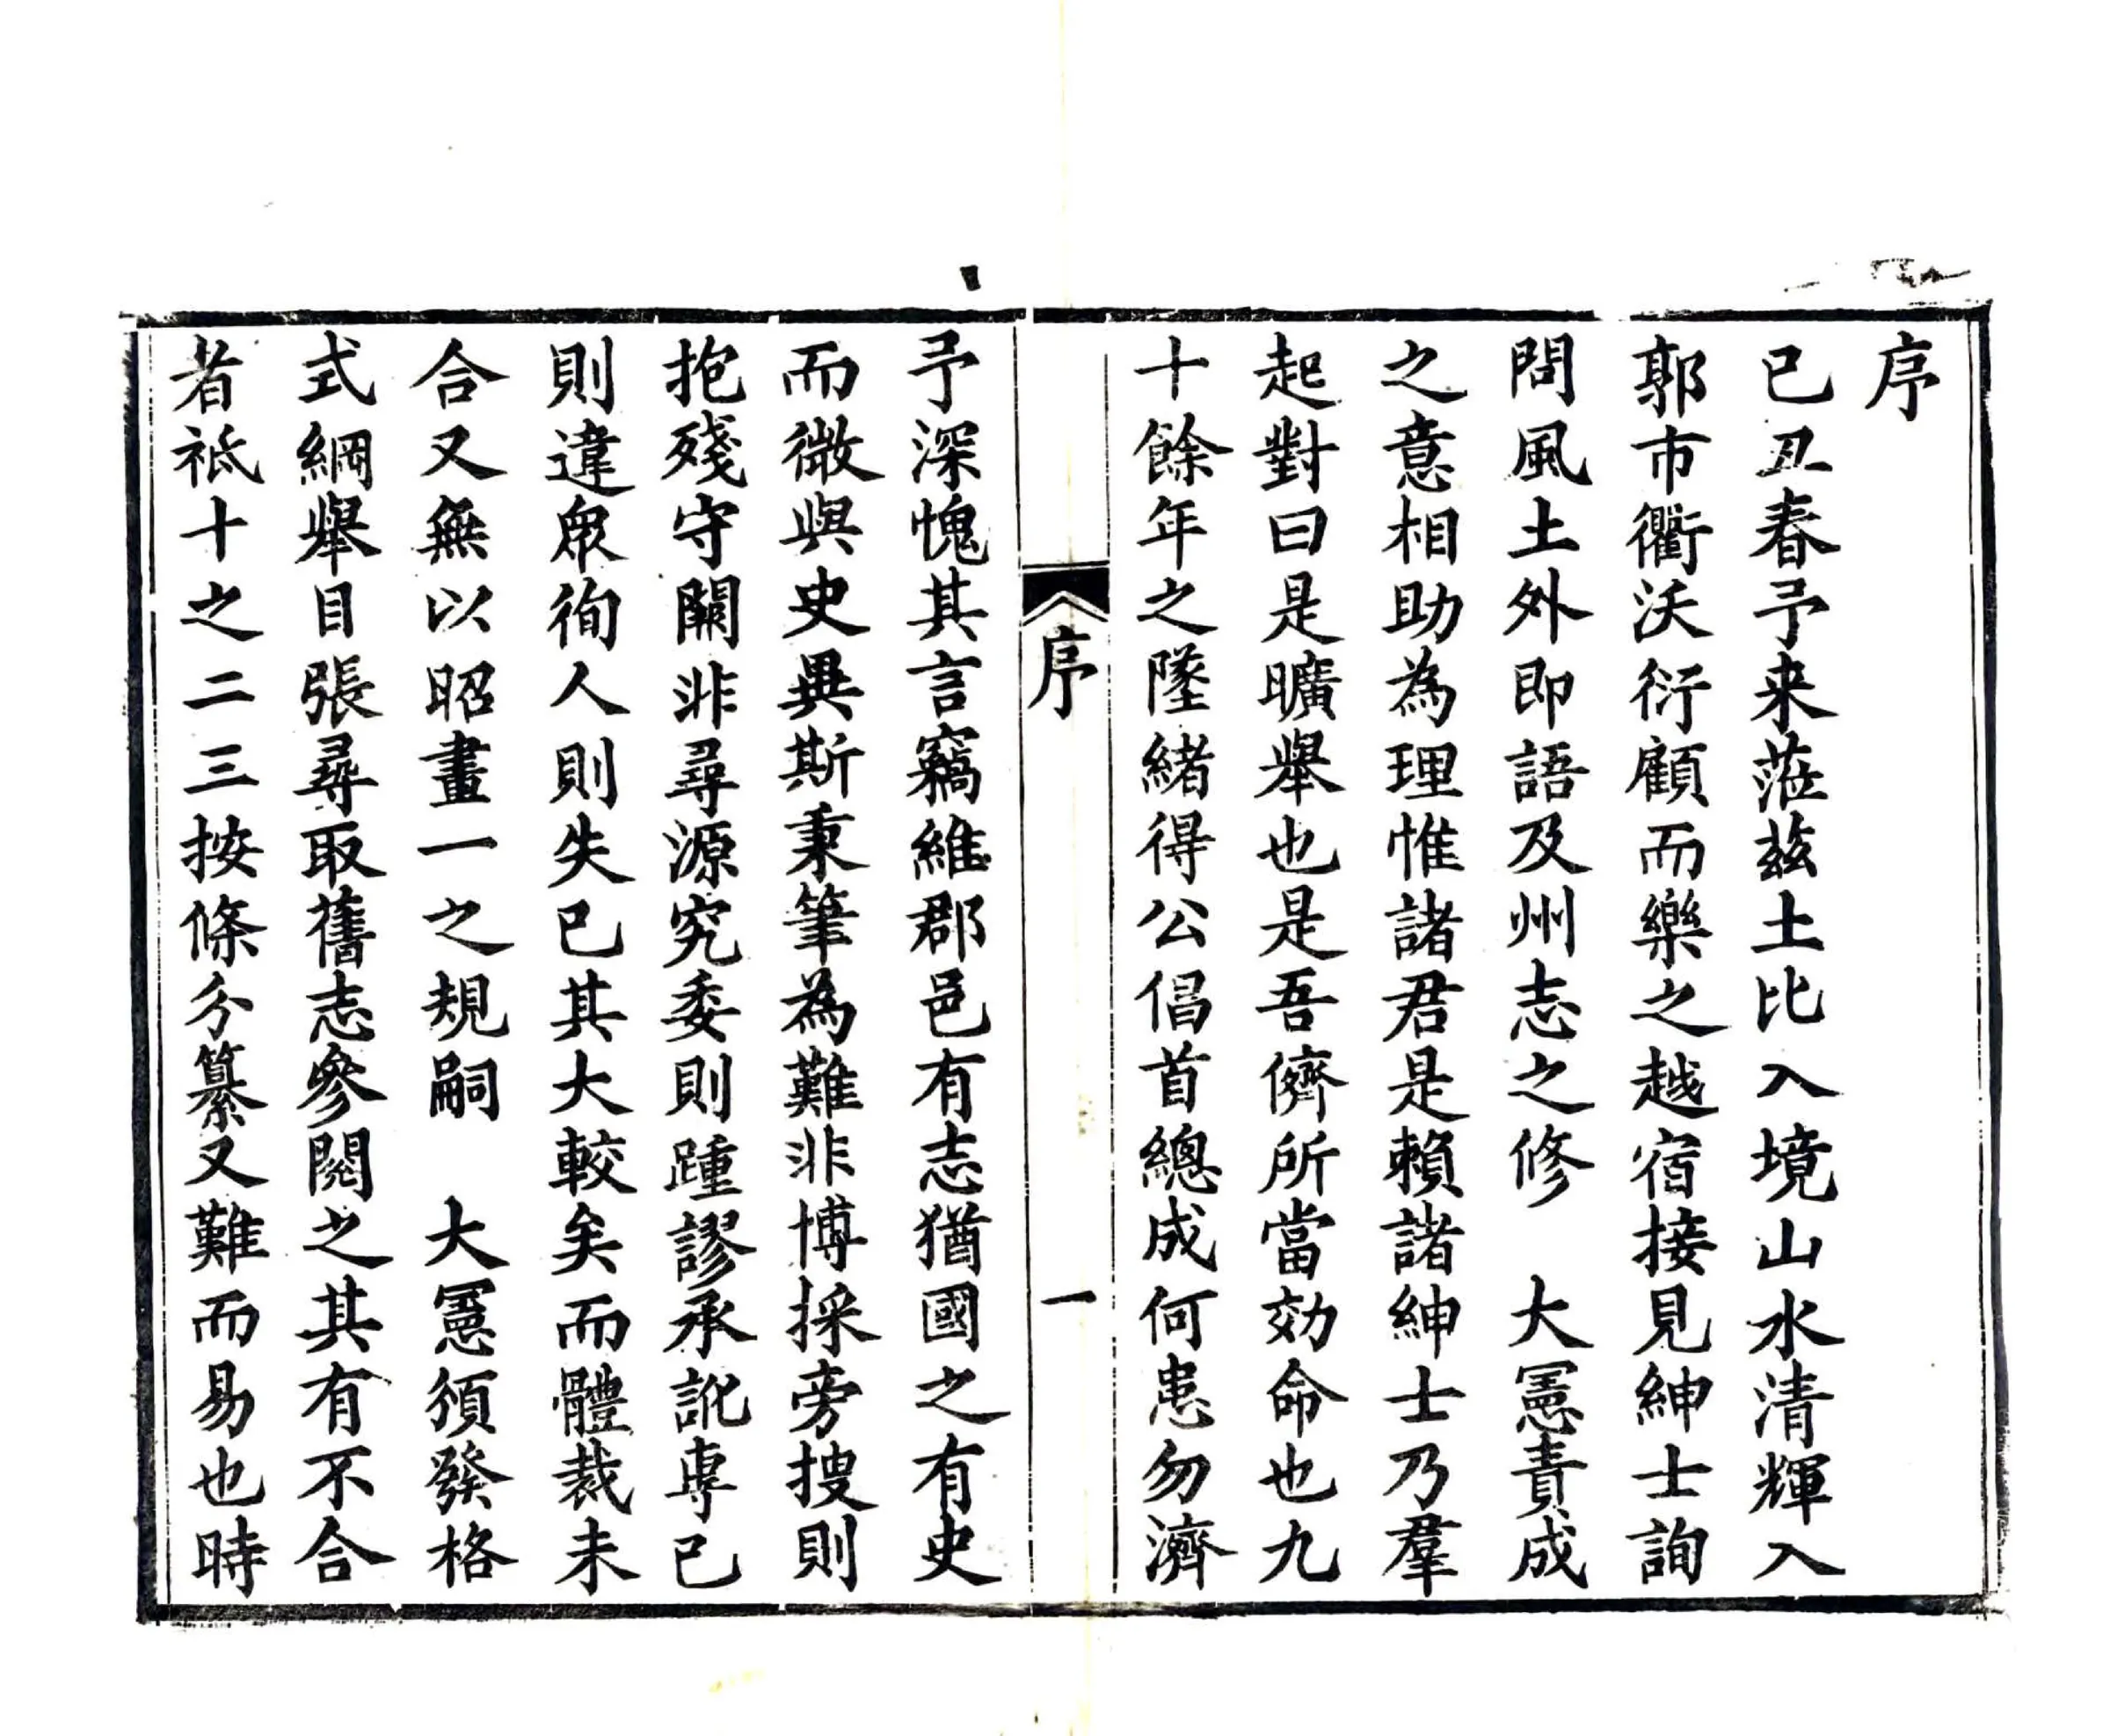 序
己丑春予来蒞茲土比入境山水清輝入
郭市衢沃衍顧而樂之越宿接見紳士詢
問風土外即語及州志之修　大憲責成
之意相助為理惟諸君是賴諸紳士乃羣
起對曰是曠舉也是吾儕所當効命也九
十餘年之墜緒得公倡首總成何患勿濟
序
一
予深愧其言竊維郡邑有志猶國之有史
而微與史異斯秉筆為難非博採旁搜則
抱殘守闕非尋源究委則踵謬承訛專己
則違眾徇人則失已其大較矣而體裁未
合又無以昭畫一之規嗣　大憲頒發格
式綱舉目張尋取舊志參閱之其有不合
者祇十之二三按條分纂又難而易也時